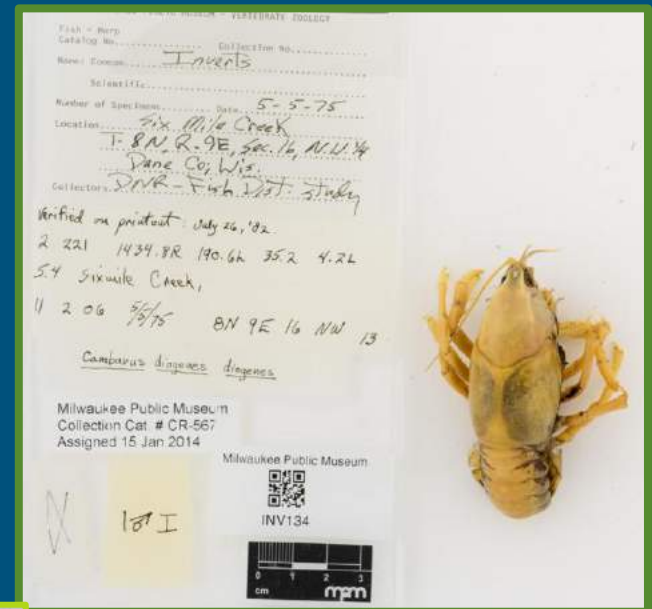 PUBLIC MUSEUM - VERTEBRATE ZOOLOGY
Fish - Herp
Catalog No. Collection No.
Name: Common Inverts
Scientific
Number of Specimens Date 5-5-75
Location Six Mile Creek
T. 8N, R. 9E, Sec. 16, N.W. 1/4
Dane Co, Wis.
Collectors DNR - Fish Dist. Study
Verified on printout: July 26, '82
2 221 1434.8R 190.6L 35.2 4.2L
5.4 Sixmile Creek,
11 2 06 5/5/75 8N 9E 16 NW 13
Cambarus diogenes diogenes
Milwaukee Public Museum
Collection Cat. # CR-567
Assigned 15 Jan 2014
Milwaukee Public Museum
INV134
1♂ I
0 1 2 3
cm mpm